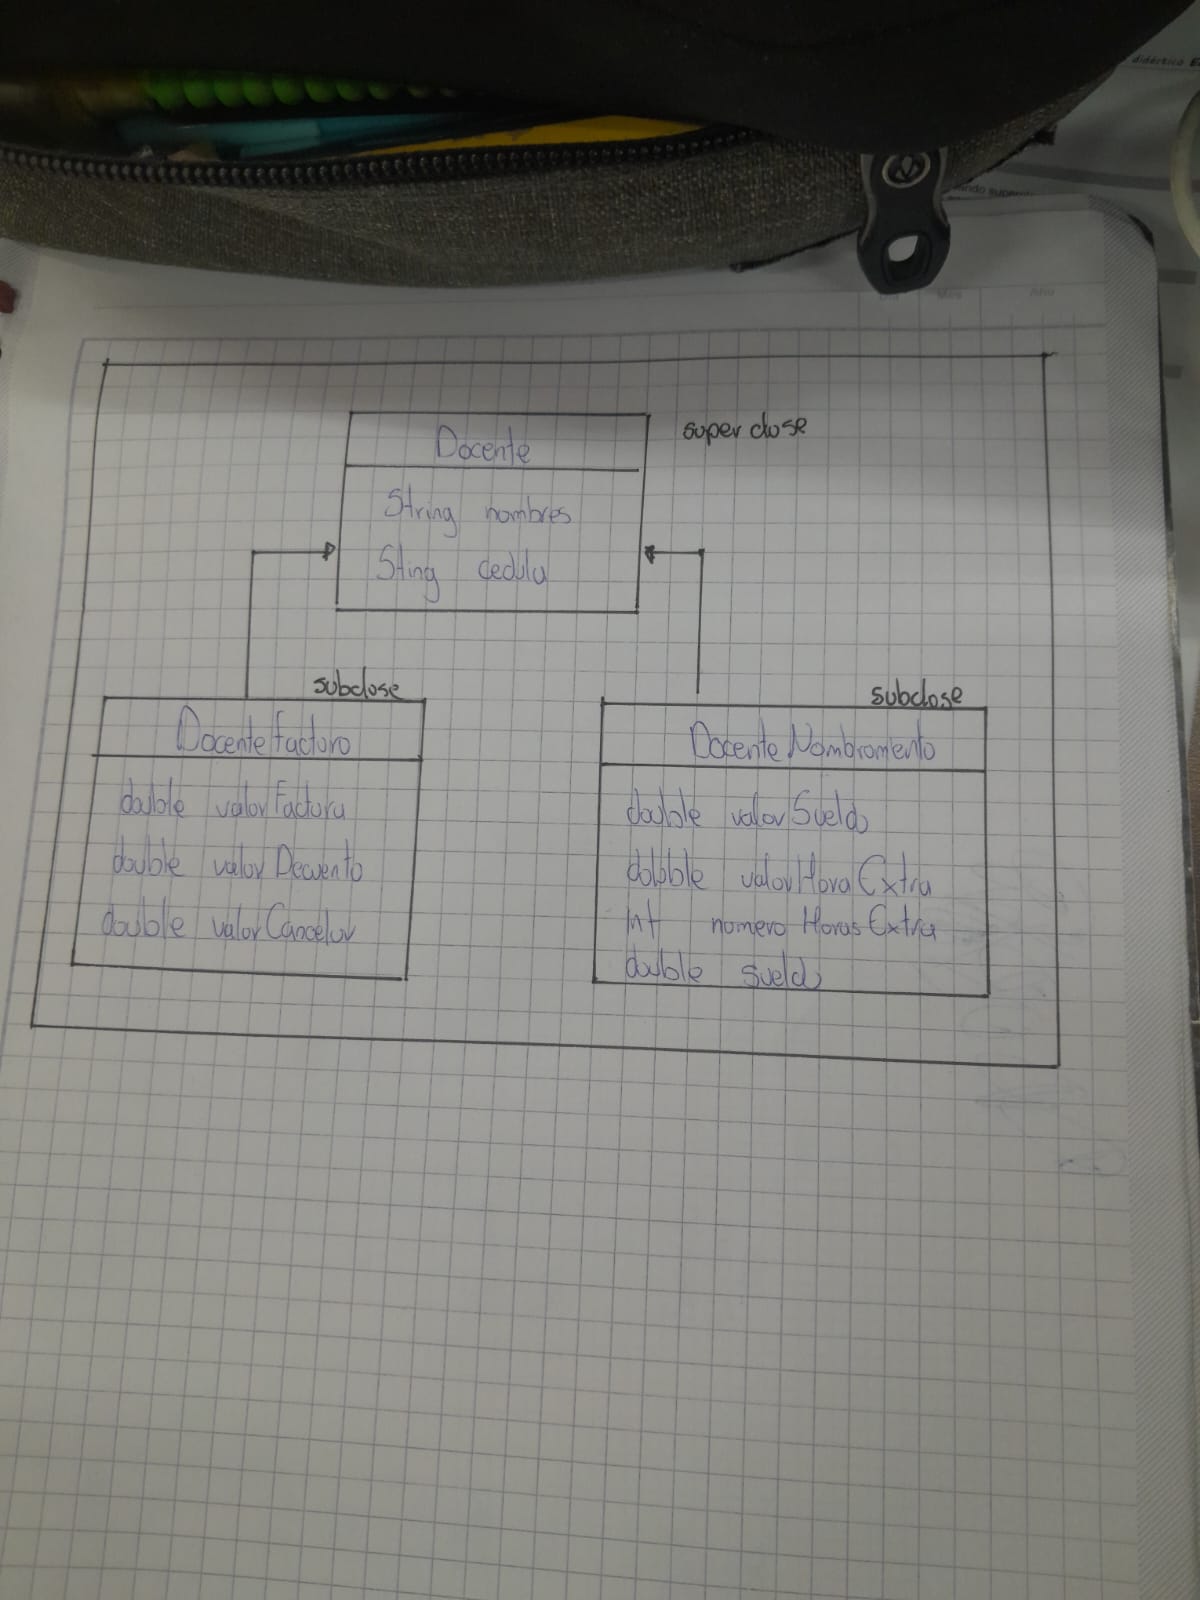 didáctico
Mes
Año
super clase
Docente
String nombres
Sting cedula
subclase
Docente Factura
double valor Factura
double valor Decuento
double valor Cancelar
subclase
Docente Nombramento
double valor Sueldo
dobble valor Hora Extra
int numero Horas Extra
double sueldo